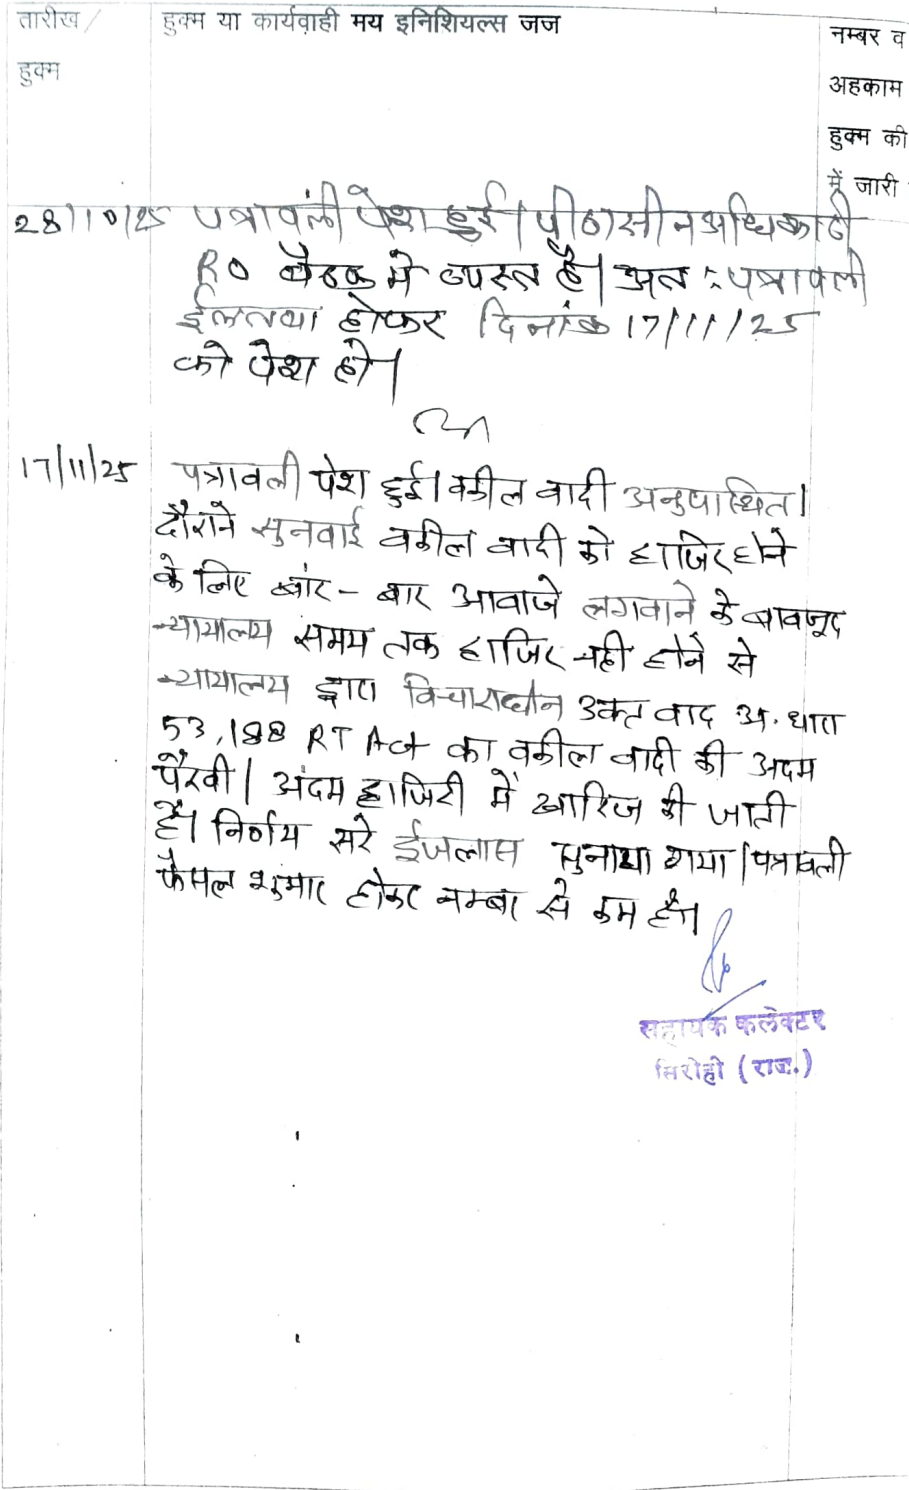 तारीख /
हुक्म
हुक्म या कार्यवाही मय इनिशियल्स जज
नम्बर व
अहकाम
हुक्म की
में जारी
28/10/25 पत्रावली पेश हुई। पीठासीन अधिकारी
RO बैठक मे व्यस्त है। अत: पत्रावली
ईलतवा होकर दिनांक 17/11/25
को पेश हो।
17/11/25 पत्रावली पेश हुई। वकील वादी अनुपस्थित।
दौराने सुनवाई वकील वादी को हाजिर होने
के लिए बार - बार आवाजे लगवाने के बावजूद
न्यायालय समय तक हाजिर नही होने से
न्यायालय द्वारा विचाराधीन उक्त वाद अ. धारा
53,188 RT Act का वकील वादी की अदम
पैरवी। अदम हाजिरी में खारिज की जाती
है। निर्णय सरे ईजलास सुनाया गया। पत्रावली
फैसल शुमार होकर नम्बर से कम है।
सहायक कलेक्टर
सिरोही (राज.)